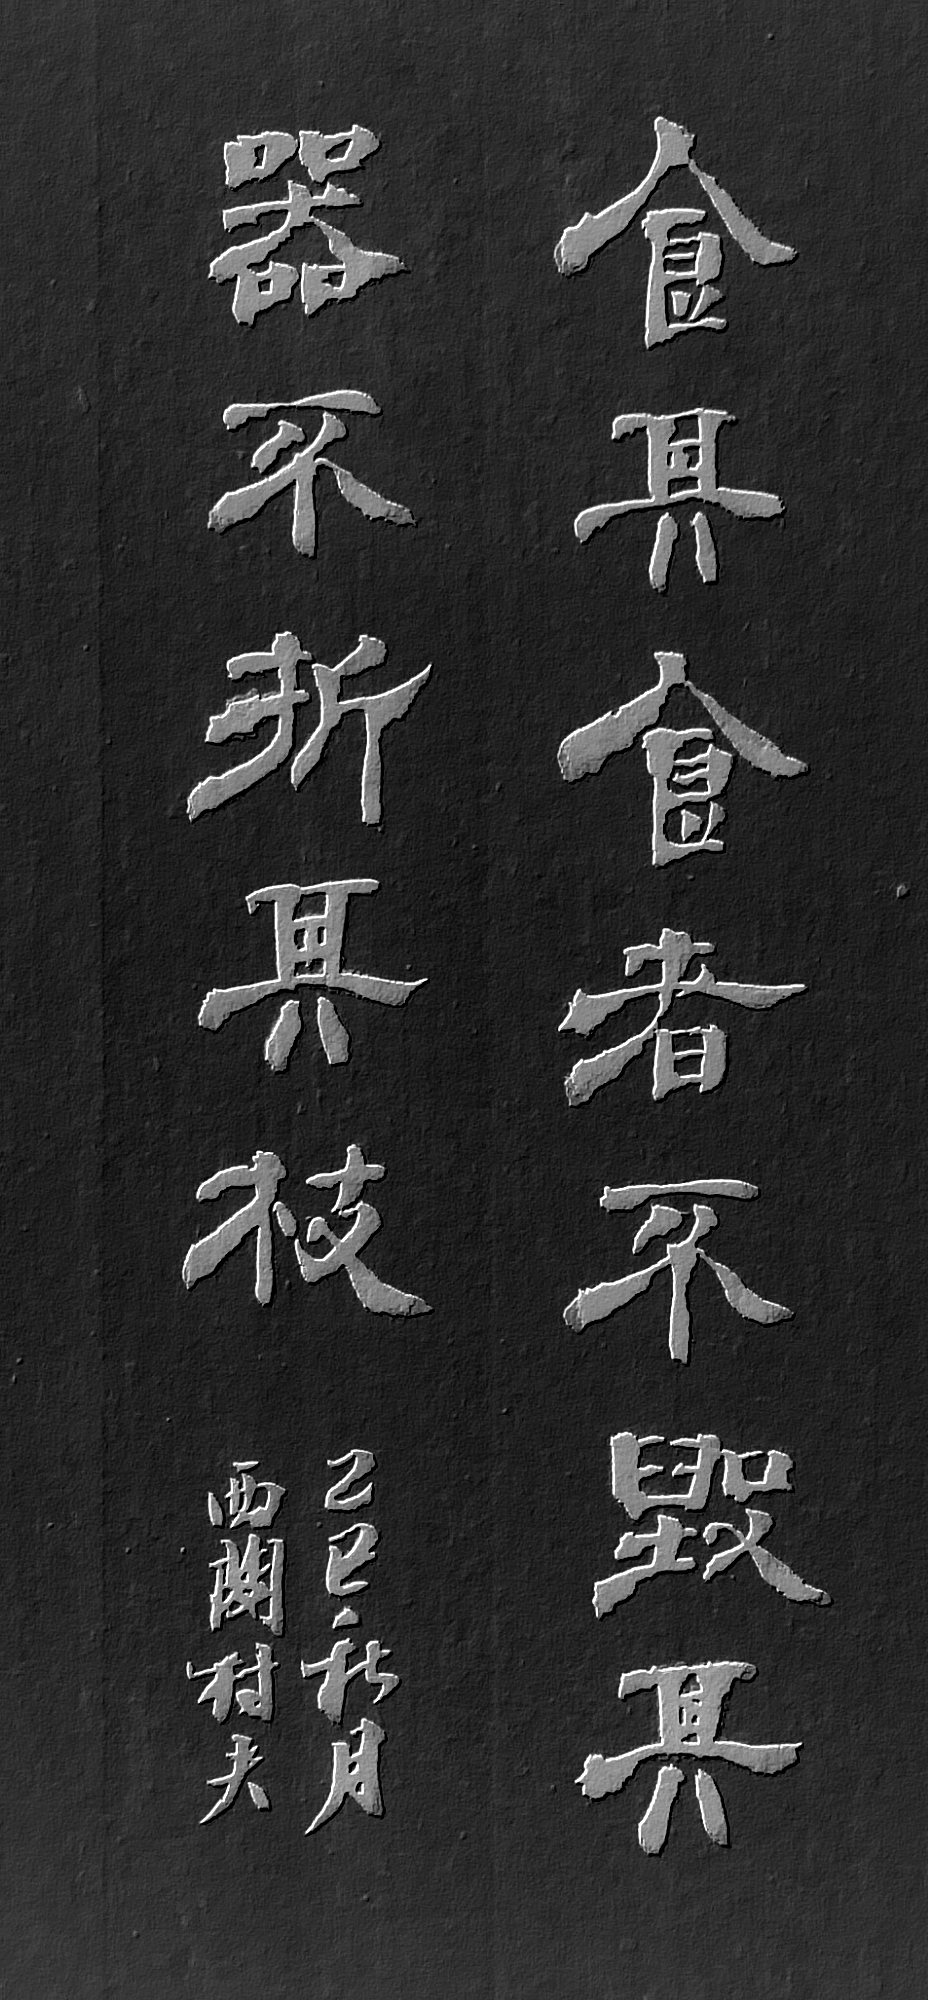 食其食者不毀其
器不折其枝
乙巳秋月
西關村夫